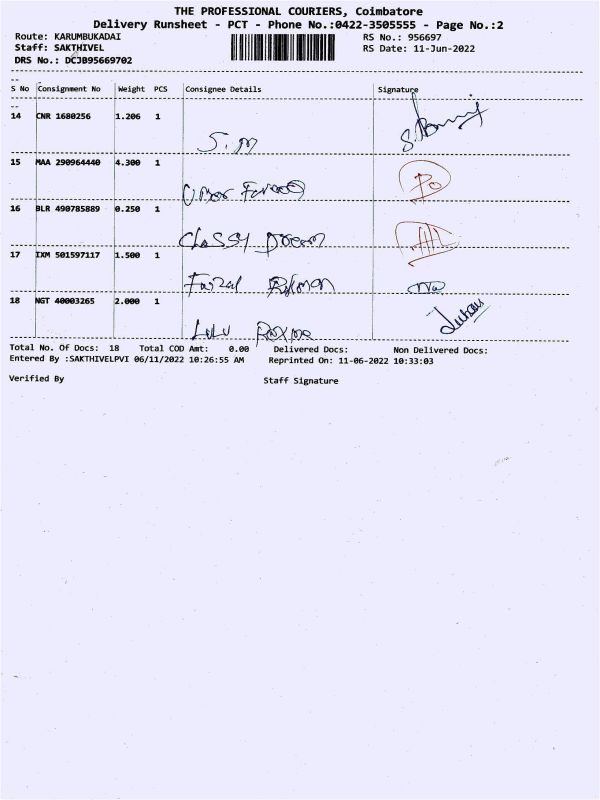 THE PROFESSIONAL COURIERS, Coimbatore
Delivery Runsheet - PCT - Phone No.:0422-3505555 - Page No.:2
Route: KARUMBUKADAI RS No.: 956697
Staff: SAKTHIVEL RS Date: 11-Jun-2022
DRS No.: DCJB95669702
S No Consignment No Weight PCS Consignee Details Signature
14 CNR 1680256 1.206 1
S. M
15 MAA 290964440 4.300 1
Umar Farooq
16 BLR 490785889 0.250 1
Classy Dream
17 IXM 501597117 1.500 1
Faizal Rahman
18 NGT 40003265 2.000 1
Lulu
Total No. Of Docs: 18 Total COD Amt: 0.00 Delivered Docs: Non Delivered Docs:
Entered By :SAKTHIVELPVI 06/11/2022 10:26:55 AM Reprinted On: 11-06-2022 10:33:03
Verified By Staff Signature